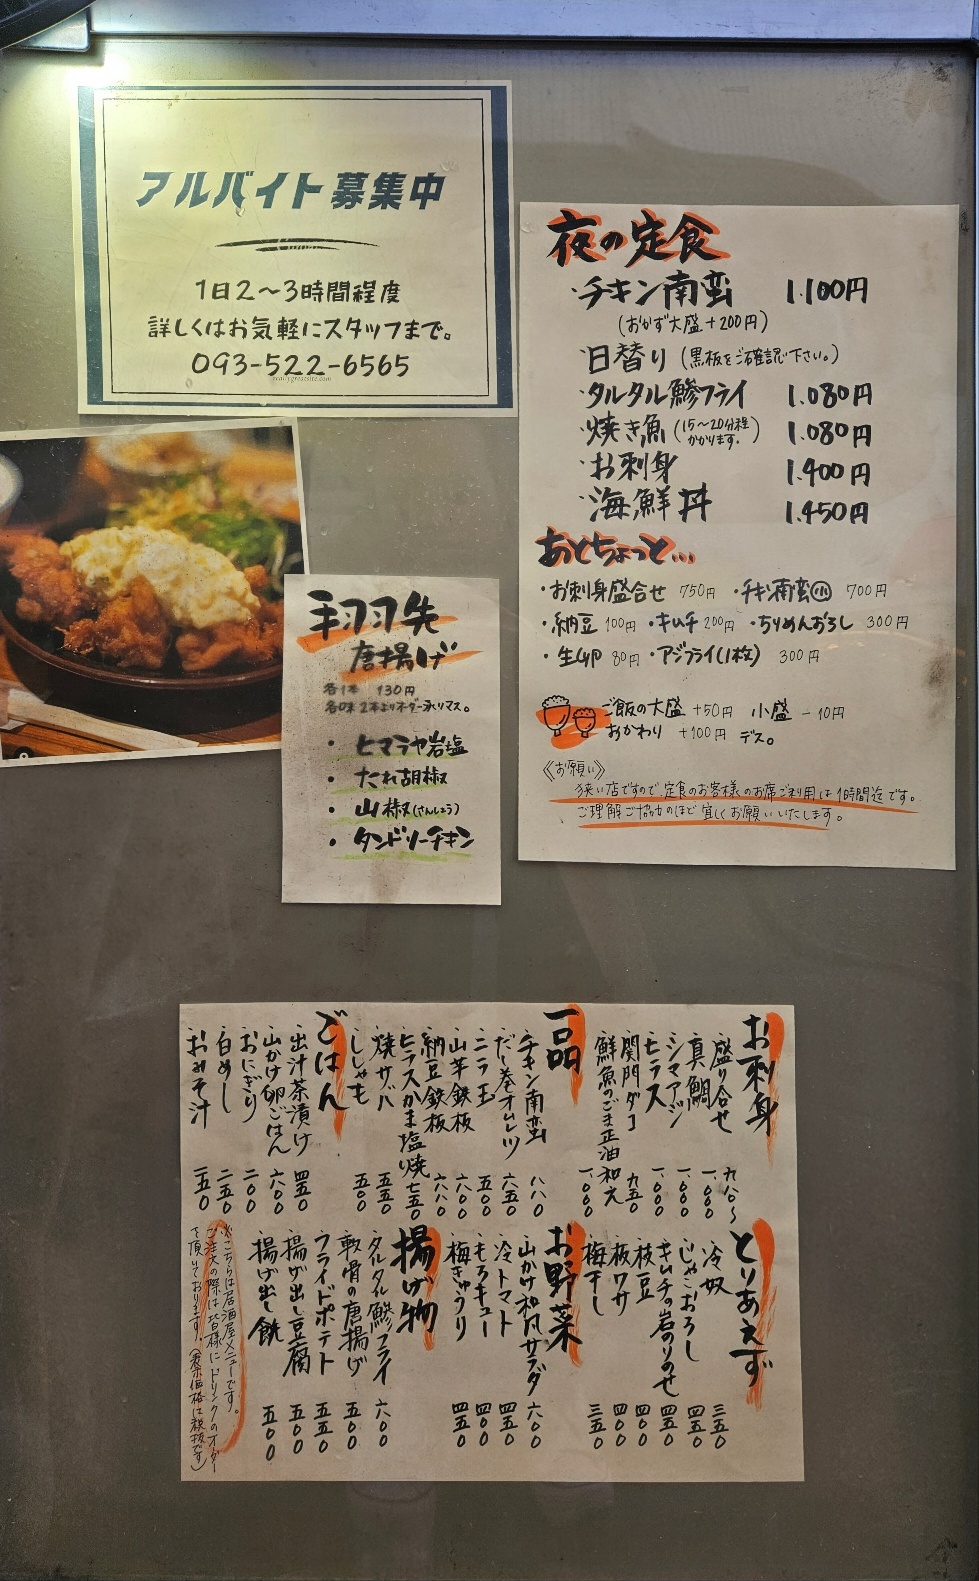 アルバイト募集中
1日2～3時間程度
詳しくはお気軽にスタッフまで。
093-522-6565
夜の定食
・チキン南蛮 1.100円
(おかず大盛+200円)
・日替り(黒板をご確認下さい。)
・タルタル鯵フライ 1.080円
・焼き魚(15～20分程かかります。) 1.080円
・お刺身 1.400円
・海鮮丼 1.450円
あとちょっと…
・お刺身盛合せ 750円 ・チキン南蛮㋛ 700円
・納豆 100円 ・キムチ 200円 ・ちりめんおろし 300円
・生卵 80円 ・アジフライ(1枚) 300円
ご飯の大盛 +50円 小盛 -10円
おかわり +100円 デス。
《お願い》
狭い店ですので、定食のお客様のお席ご利用は1時間迄です。
ご理解ご協力のほど宜しくお願いいたします。
手羽先
唐揚げ
各1本 130円
各味2本よりオーダー承りマス。
・ヒマラヤ岩塩
・たれ胡椒
・山椒(さんしょう)
・タンドリーチキン
お刺身
・盛り合せ 九八〇～
・真鯛 一、〇〇〇
・シマアジ 一、〇〇〇
・ヒラス 一、〇〇〇
・関門ダコ 九五〇
・鮮魚のごま正油和え 一、〇〇〇
一品
・チキン南蛮 八八〇
・だし巻オムレツ 六五〇
・ニラ玉 五〇〇
・山芋鉄板 六〇〇
・納豆鉄板 六〇〇
・ヒラスかま塩焼 七五〇
・焼サバ 五五〇
・ししゃも 五〇〇
ごはん
・出汁茶漬け 四五〇
・山かけ卵ごはん 六〇〇
・おにぎり 二〇〇
・白めし 二五〇
・おみそ汁 二五〇
とりあえず
・冷奴 三五〇
・じゃこおろし 四五〇
・キムチの岩のりのせ 四五〇
・枝豆 四〇〇
・板ワサ 四〇〇
・梅干し 三五〇
お野菜
・山かけ和風サラダ 六〇〇
・冷トマト 四五〇
・モロキュー 四〇〇
・梅きゅうり 四五〇
揚げ物
・タルタル鯵フライ 六〇〇
・軟骨の唐揚げ 五〇〇
・フライドポテト 五五〇
・揚げ出し豆腐 五〇〇
・揚げ出し餅 五〇〇
※こちらは居酒屋メニューです。
ご注文の際は皆様にドリンクのオーダー
を頂いております。(表示価格は税抜です)